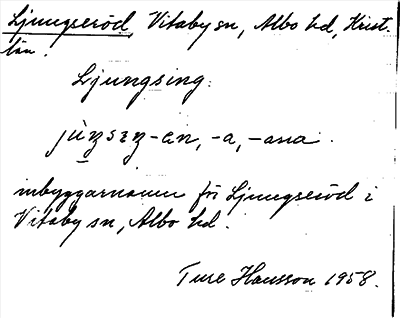 Ljungseröd, Vitaby sn, Albo hd, Krist.
län.
Ljungsing.
jùŋsɪŋ -an, -a, -ana.
inbyggarnamn för Ljungseröd i
Vitaby sn, Albo hd.
Ture Hansson 1958.